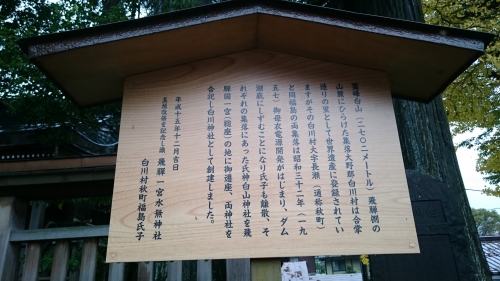 霊峰白山(二七〇二メートル)飛騨側の
山麓にひらけた集落大野郡白川村は合掌
造りの里として世界遺産に登録されてい
ますがその白川村大字長瀬(通称秋町)
と同福島の両集落は昭和三十二年(一九
五七)御母衣電源開発がはじまり、ダム
湖底にしずむことになり氏子も離散、そ
れぞれの集落にあった氏神白山神社を飛
騨国一宮(総座)の地に御遷座、両神社を
合祀し白川神社として創建しました。
平成十五年十二月吉日
葺替改修を記念し誌 飛騨一宮水無神社
白川村秋町福島氏子